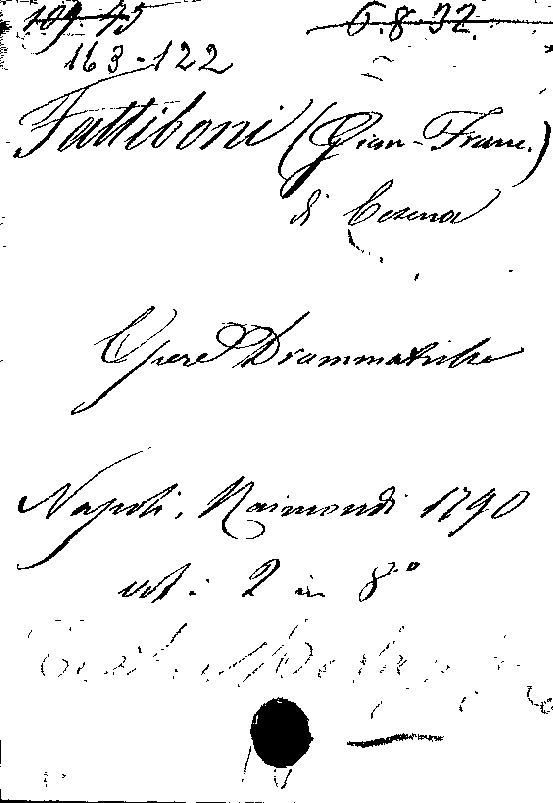 109-45 6.8.32.
163-122
Fattiboni (Gian-Franc.)
di Cesena
Opere Drammatiche
Napoli, Raimondi 1790
vol: 2 in 8°